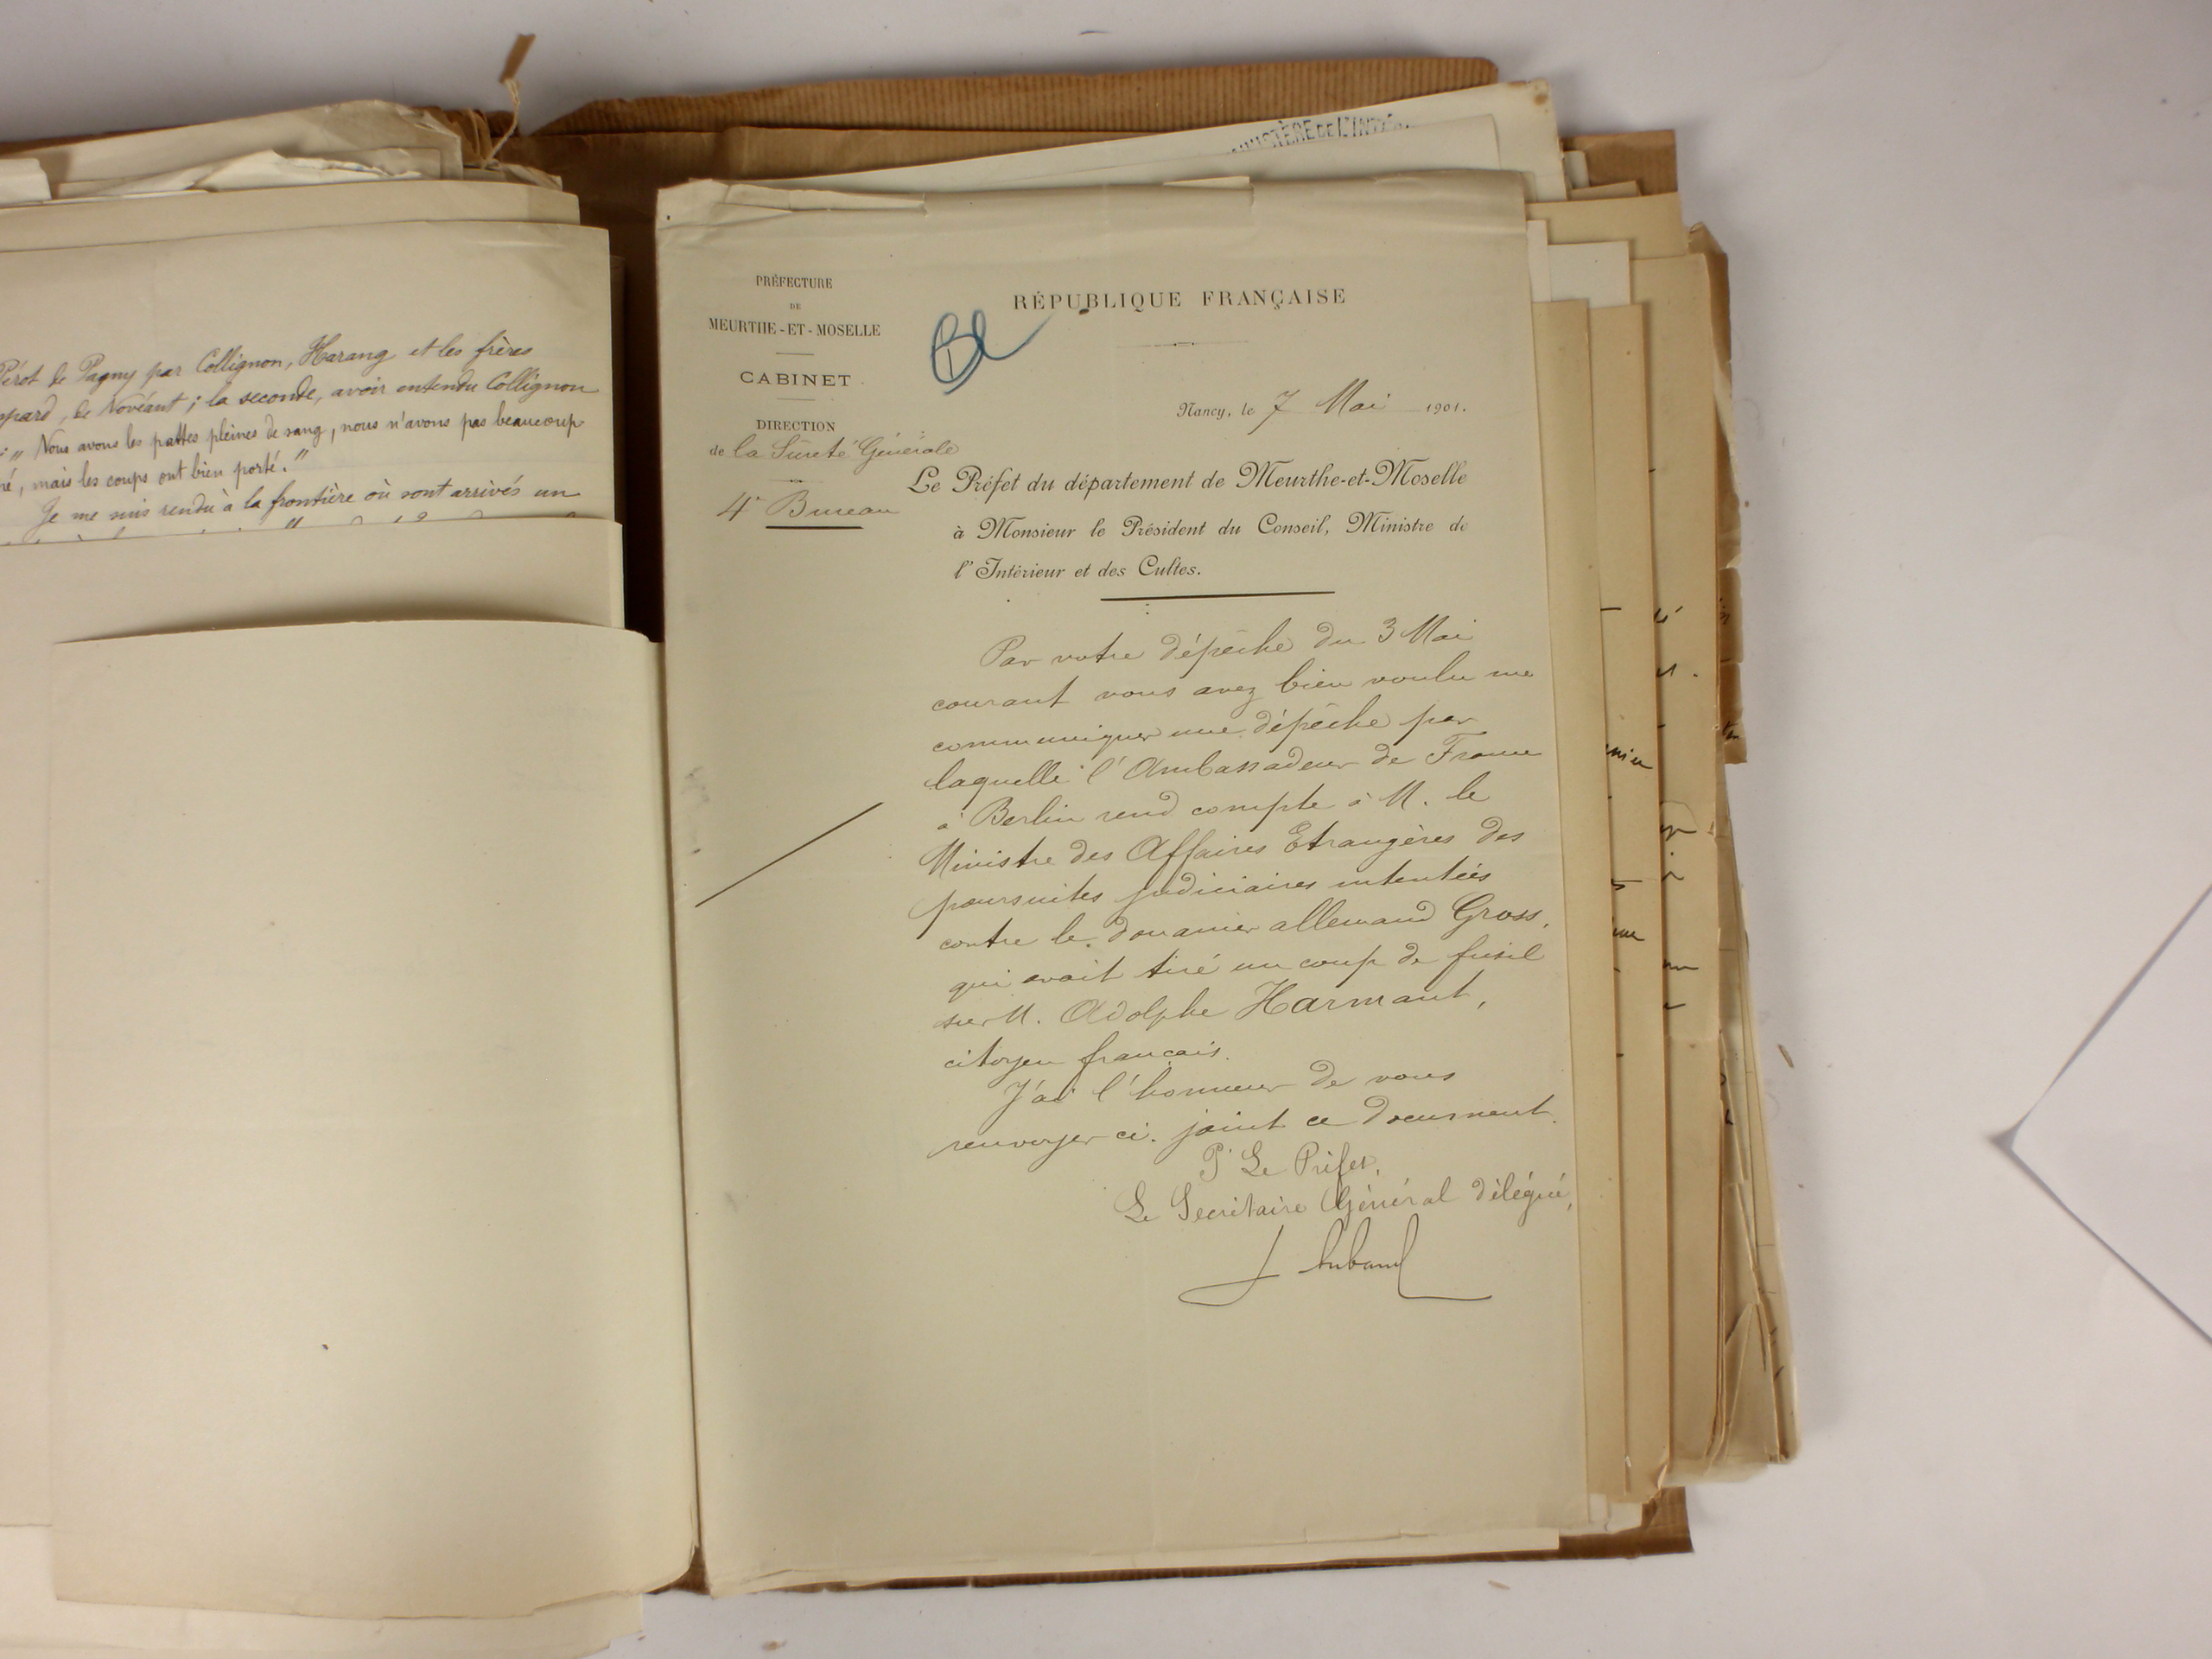 Pérot de Pagny par Collignon, Harang et les frères
ppard, de Novéant ; la seconde, avoir entendu Collignon
: „ Nous avons les pattes pleines de sang, nous n'avons pas beaucoup
né, mais les coups ont bien porté. "
Je me suis rendu à la frontière où sont arrivés un
MINISTÈRE DE L'INTÉ
PRÉFECTURE
DE
MEURTHE-ET-MOSELLE
CABINET
DIRECTION
de la Sûreté Générale
4e Bureau
RÉPUBLIQUE FRANÇAISE
Nancy, le 7 Mai 1901.
Le Préfet du département de Meurthe-et-Moselle
à Monsieur le Président du Conseil, Ministre de
l'Intérieur et des Cultes.
Par votre dépêche du 3 Mai
courant vous avez bien voulu me
communiquer une dépêche par
laquelle l'Ambassadeur de France
à Berlin rend compte à M. le
Ministre des Affaires Etrangères des
poursuites judiciaires intentées
contre le douanier allemand Gross,
qui avait tiré un coup de fusil
sur M. Adolphe Harmant,
citoyen français.
J'ai l'honneur de vous
renvoyer ci-joint ce document.
Pr Le Préfet,
Le Secrétaire Général délégué,